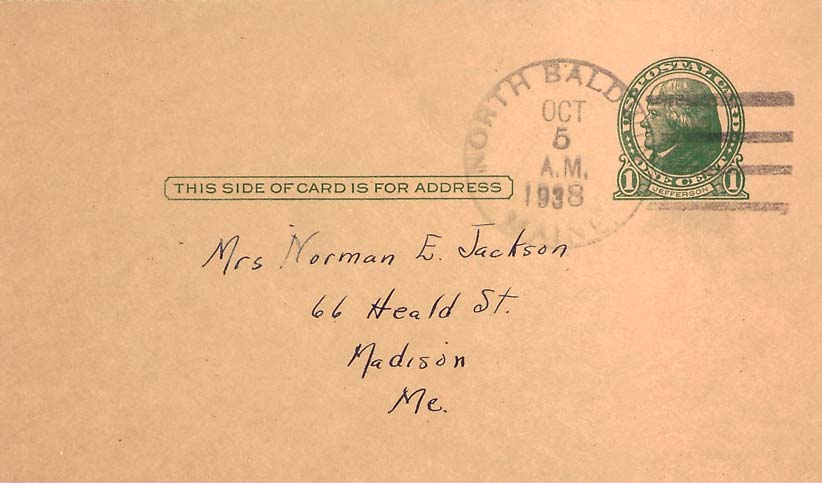 NORTH BALD
OCT
5
A.M.
1938
MAINE
U.S. POSTAL CARD
ONE CENT
1 JEFFERSON 1
THIS SIDE OF CARD IS FOR ADDRESS
Mrs Norman E. Jackson
66 Heald St.
Madison
Me.